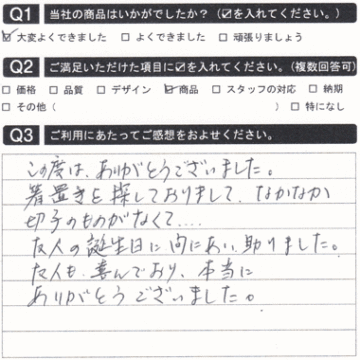 Q1 当社の商品はいかがでしたか？（☑を入れてください。）
☑ 大変よくできました □ よくできました □ 頑張りましょう
Q2 ご満足いただけた項目に☑を入れてください。（複数回答可）
□ 価格 □ 品質 □ デザイン ☑ 商品 □ スタッフの対応 □ 納期
□ その他（ ） □ 特になし
Q3 ご利用にあたってご感想をおよせください。
この度は、ありがとうございました。
箸置きを探しておりまして、なかなか
切子のものがなくて....
友人の誕生日に間にあい、助りました。
友人も、喜んでおり、本当に
ありがとうございました。